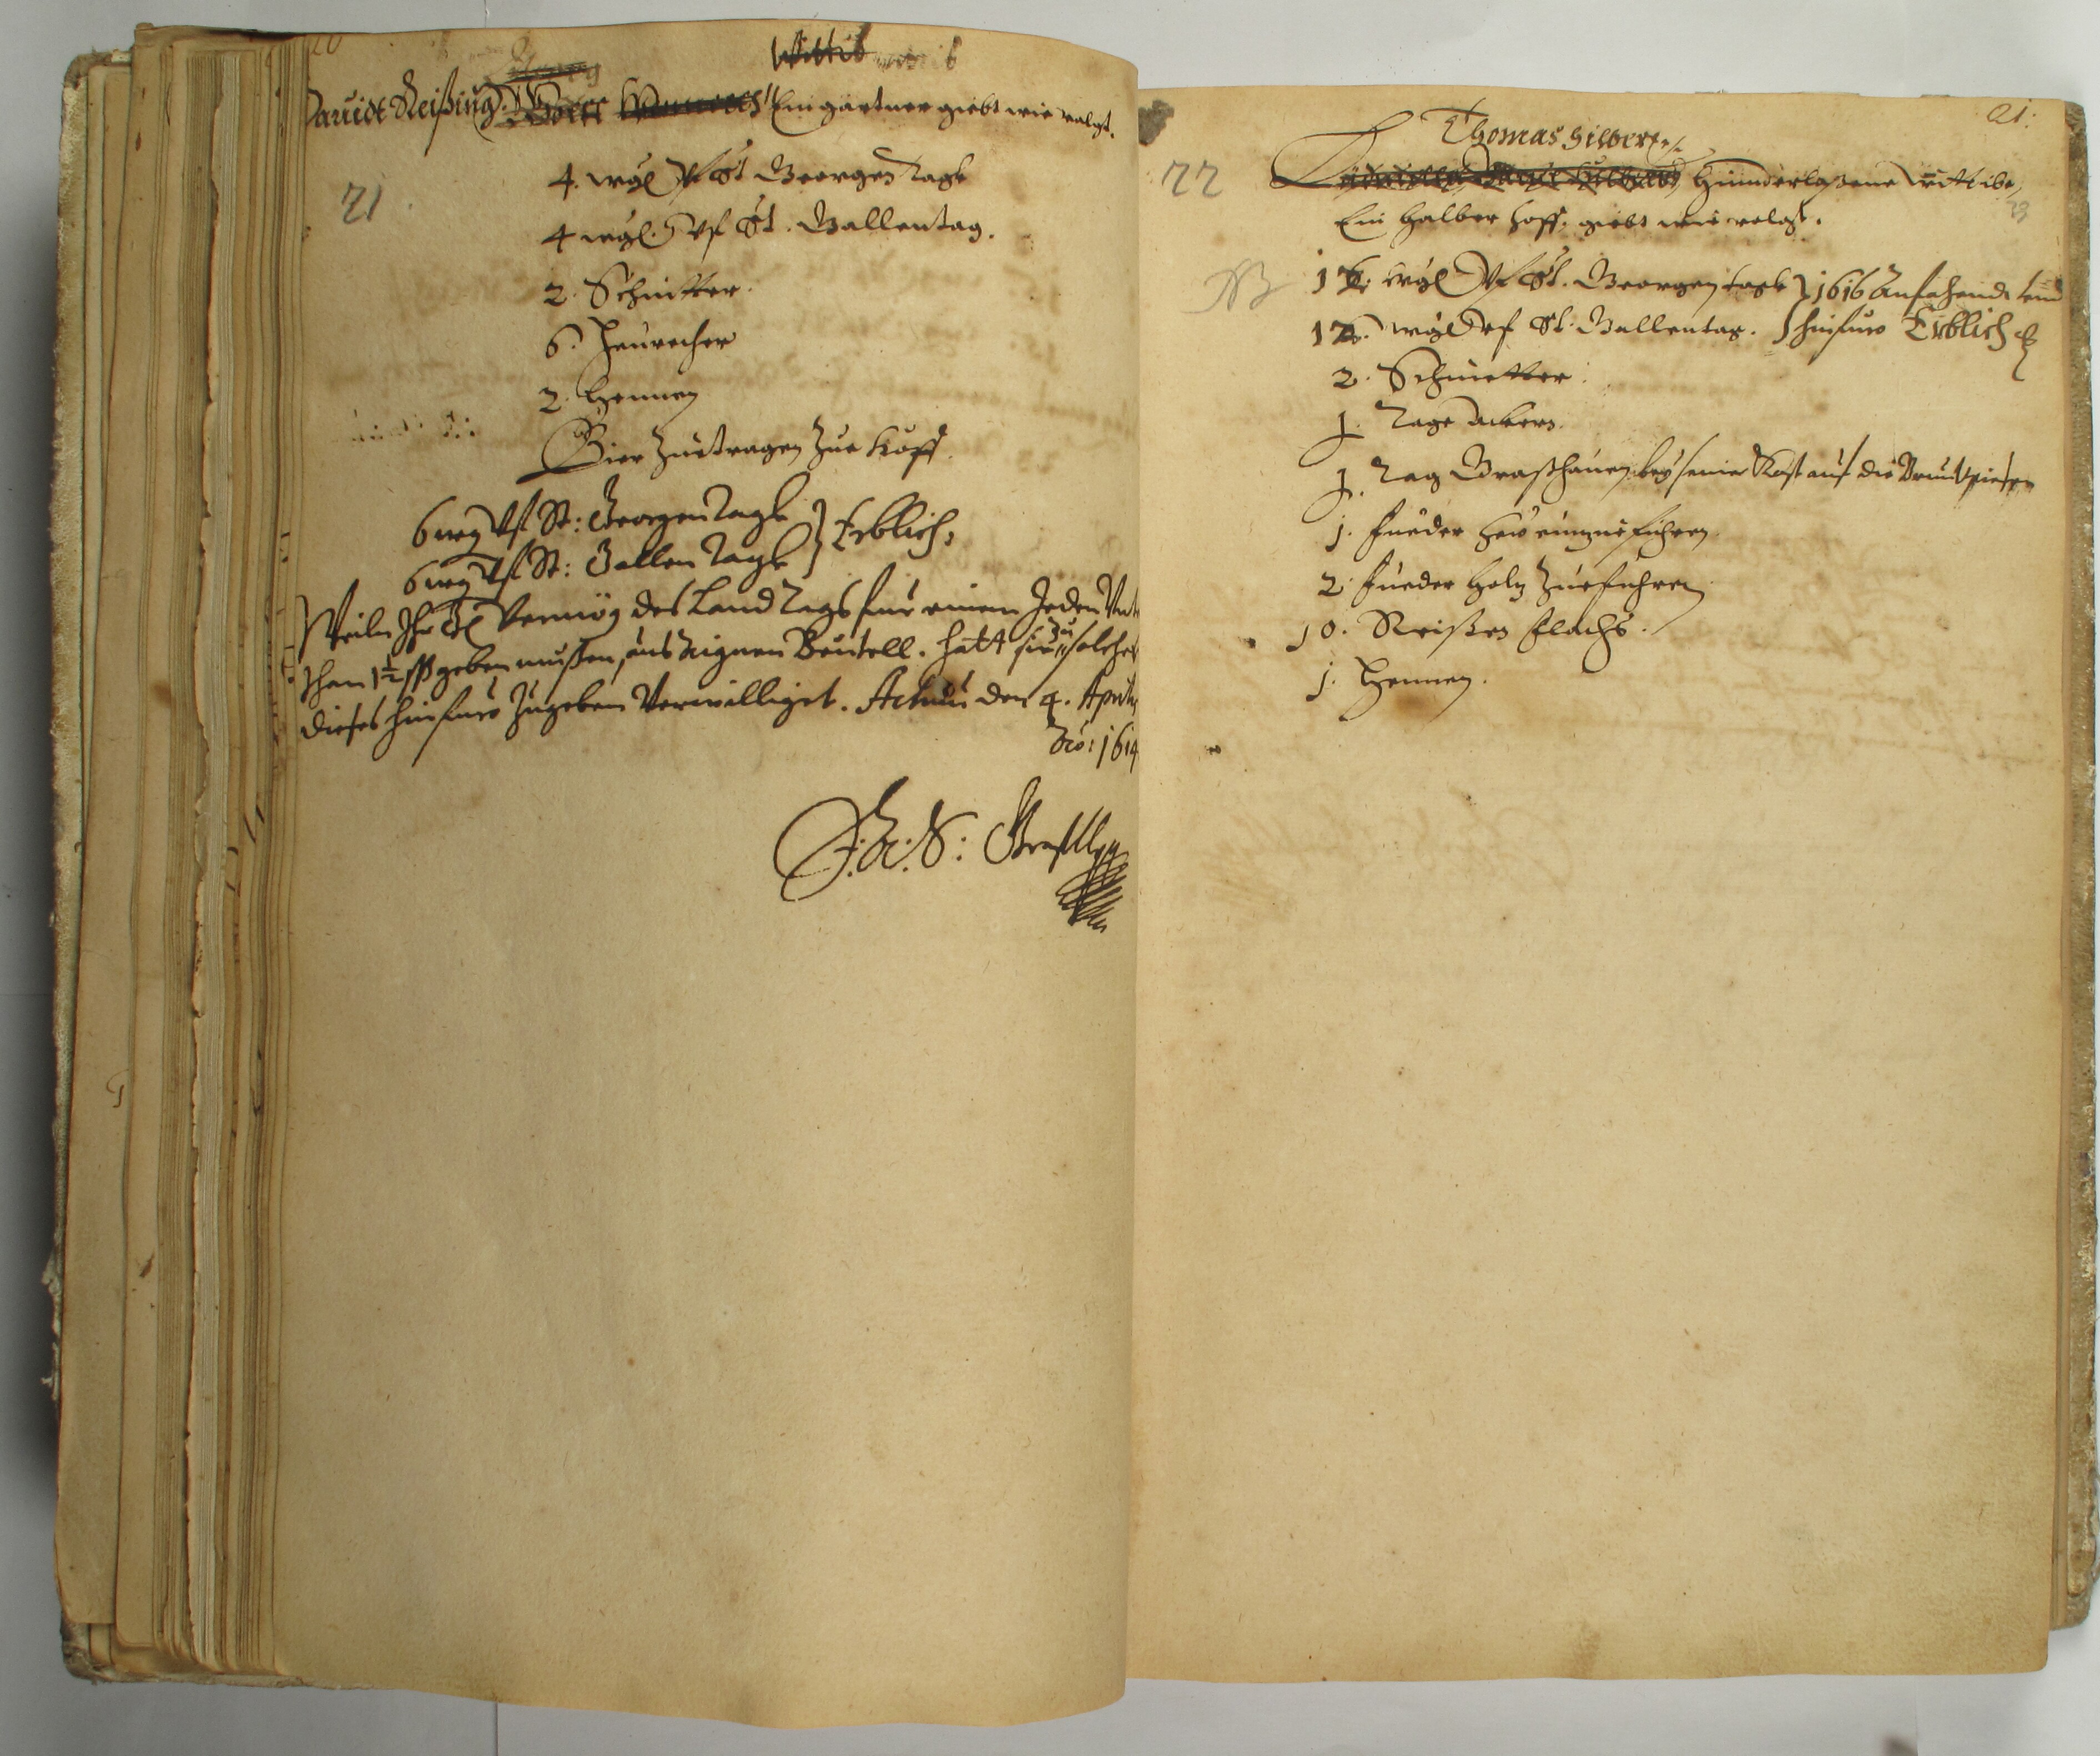 20
Wittib
Dauidt Reißing. Ein gärtner giebt wie volgt.
21
4. wgl Vf St Georgen Tagk
4 wgl. Vf St. Gallentag.
2. Schnitter.
6. Heurecher
2. Hennen
Bier Zuetragen Zue Hoff.
6 wg Vf St: Georgen Tagk
6 wg Vf St: Gallen Tagk } Erblich.
Weiln Ihr Vermög des Land Tags fur einen Jeden
than 1½ ß geben mußen, aus Aignen Beutell. hatt sie Zu solcher
dieses hinfuro Zugeben Verwilliget. Actum den 4. Aprilis
Ao: 1614
21.
Thomas Hilbert
22
Hinderlaßene wittibe,
23
Ein halber hoff. giebt wie volgt.
NB
wgl Vf St. Georgen tagk } 1616 Anfahend
wgl Vf St. Gallentag. } hinfuro Erblich
2. Schnitter.
1. Tage ackern.
1. Tag Graßhauen bey seiner Kost auf die
1. fueder hew einzueführen.
2. fueder Holz Zueführen
10. Reisten flachs.
1. Hennen.